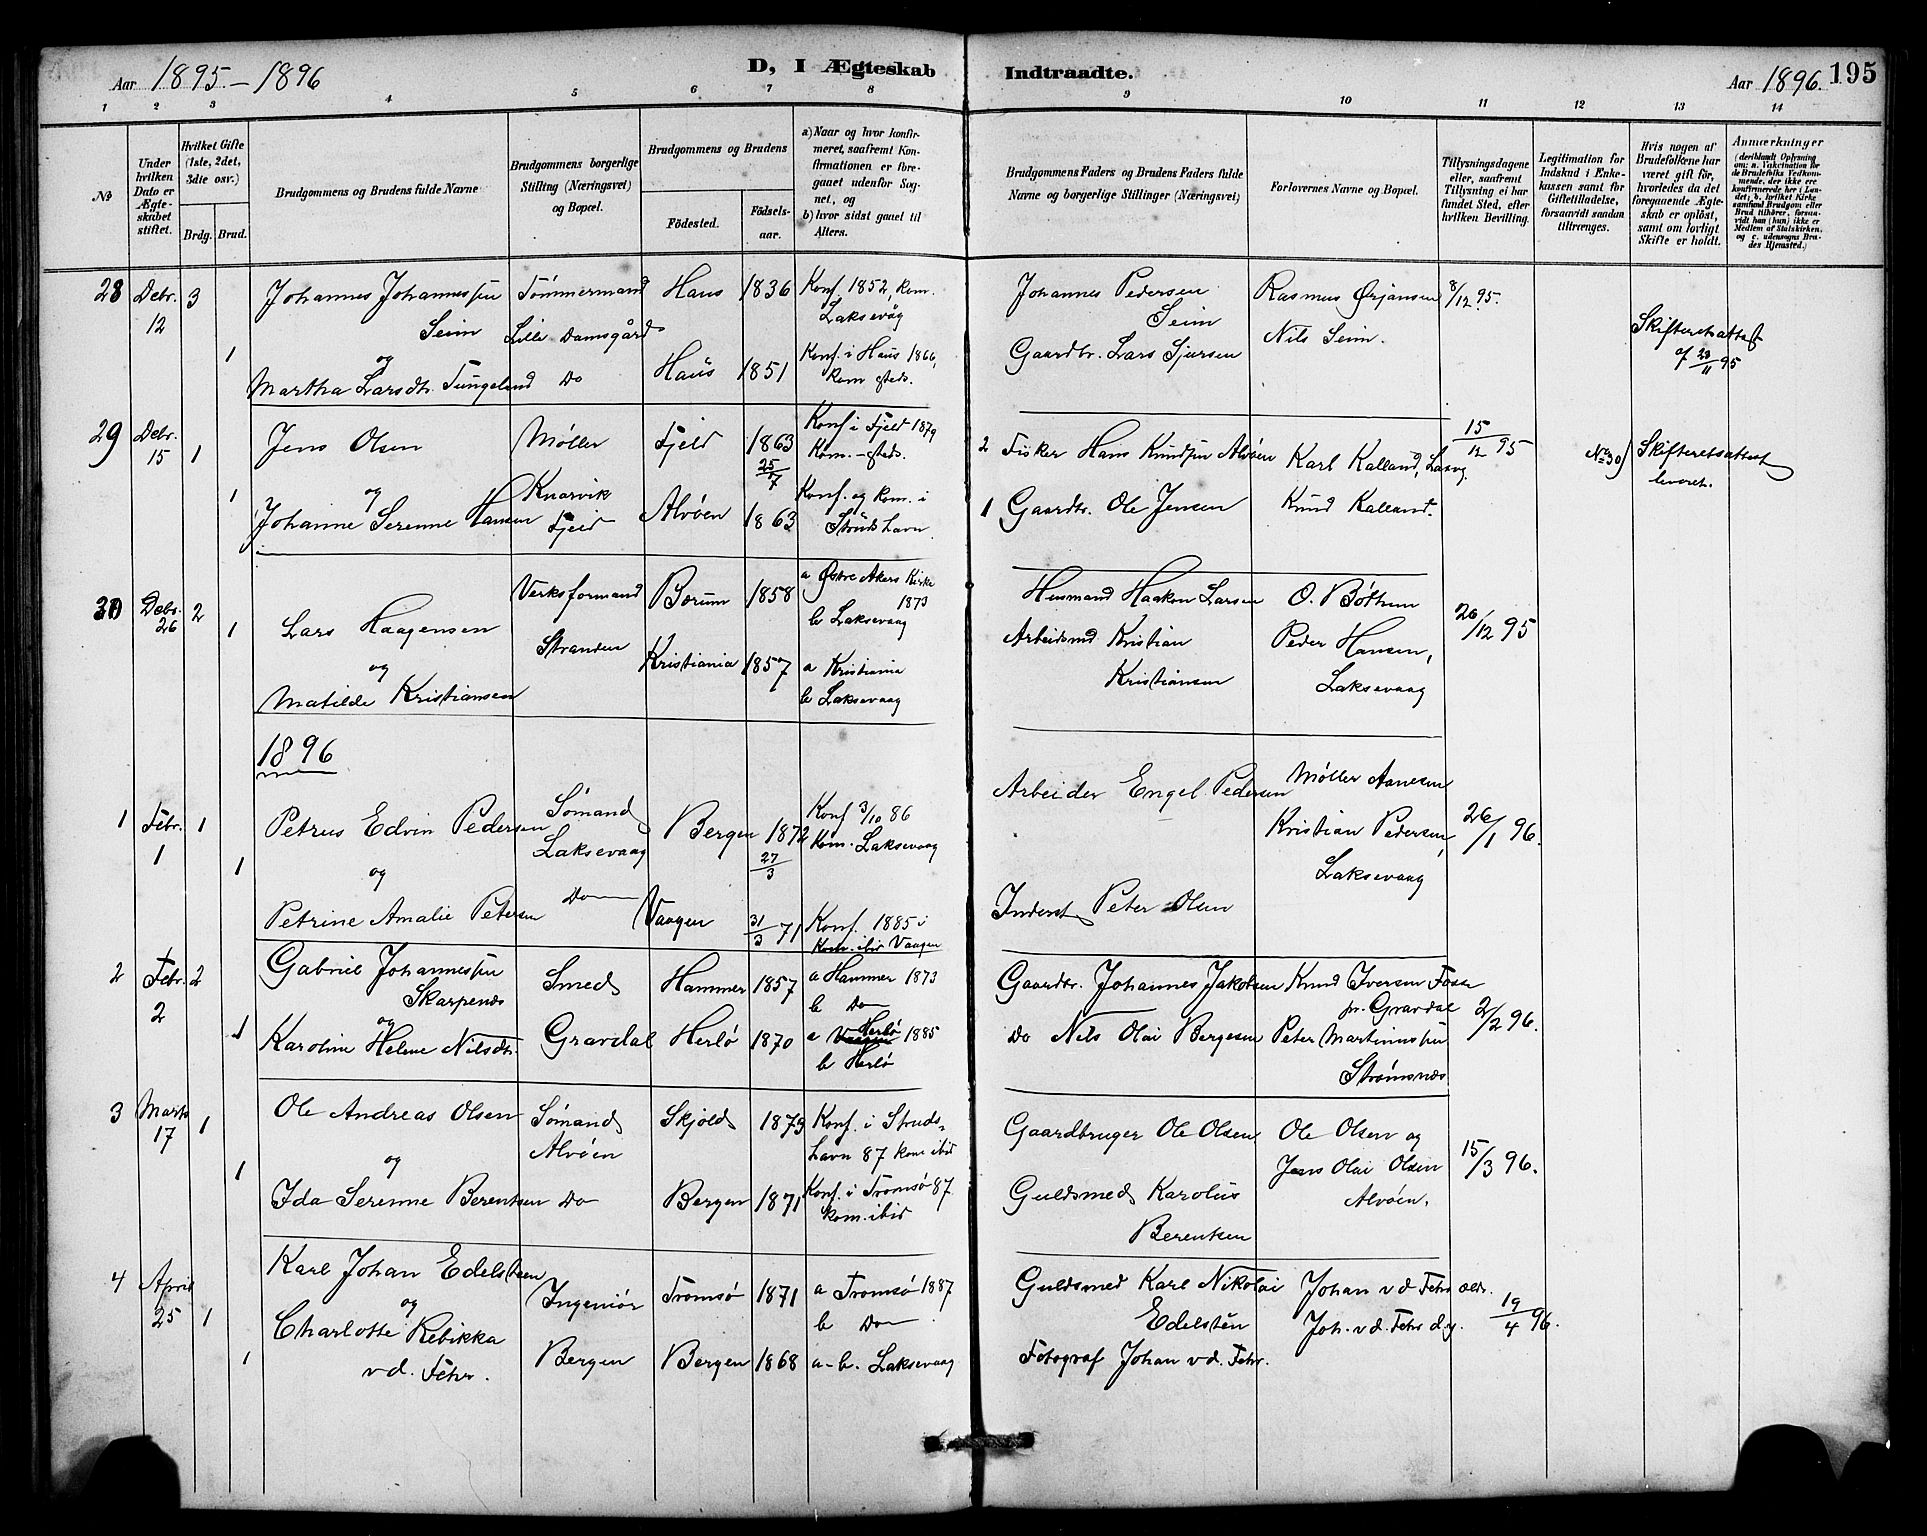 Aar 1895.-1896
D, I Ægteskab Indtraadte.
Aar 1896. 195
1 2 3 4 5 6 7 8 9 10 11 12 13 14
No
Under hvilken Dato er Ægteskabet stiftet.
Hvilket Gifte (1ste, 2det, 3die osv.)
Brdg. Brud.
Brudgommens og Brudens fulde Navne
Brudgommens borgerlige Stilling (Næringsvei) og Bopæl.
Brudgommens og Brudens
Födested.
Födselsaar.
a) Naar og hvor konfirmeret, saafremt Konfirmationen er foregaaet udenfor Sognet, og
b) hvor sidst gaaet til Alters.
Brudgommens Faders og Brudens Faders fulde Navne og borgerlige Stillinger (Næringsvei)
Forlovernes Navne og Bopæl.
Tillysningsdagene eller, saafremt Tillysning ei har fundet Sted, efter hvilken Bevilling.
Legitimation for Indskud i Enkekassen samt for Giftetilladelse, forsaavidt saadan tiltrænges.
Hvis nogen af Brudefolkene har været gift för, hvorledes da det foregaaende Ægteskab er oplöst, samt om lovligt Skifte er holdt.
Anmærkninger (deriblandt Oplysning om: a. Vakcination for de Brudefolks Vedkommende, der ikke ere konfirmerede her i Landet; b. hvilket Kirkesamfund Brudgom eller Brud tilhörer, forsaavidt han (hun) ikke er Medlem af Statskirken, og c. udensogns Brudes Hjemsted.)
28 Debr. 12 3 Johannes Johannessen Seim Tømmermand Lille Damsgård Haus 1836 Konf. 1852, Kom. Laksevåg
Johannes Pedersen Seim Rasmus Ørjansen 8/12 95.
og
1 Martha Larsdtr. Tungeland Do Haus 1851 Konf. i Haus 1866, Kom. steds.
Gaardbr. Lars Sjursen Nils Seim. Skifteretsattest af 23/11 95
29 Debr. 15 1 Jens Olsen Møller Fjeld 1863 25/7 Konf. i Fjeld 1879 Kom. -steds.
2 Fisker Hans Knudsen Alvøen Karl Kalland, Laxvg. 15/12 95 No 30) Skifteretsattest leveret.
og
1 Johanne Serenne Hansen Knarvik Fjeld Alvøen 1863 Konf. og kom. i Strudshavn.
1 Gaardbr. Ole Jensen Knud Kalland.
30 Debr. 26 2 Lars Haagensen Verksformand Stranden Bærum 1858 a Østre Akers Kirke 1873 b Laksevaag
Husmand Haakon Larsen O. Bøthun 26/12 95
og
1 Matilde Kristiansen Kristiania 1857 a Kristiania b Laksevaag
Arbeidsmd Kristian Kristiansen Peder Hansen, Laksevaag
1896
1 Febr. 1 1 Petrus Edvin Pedersen Sømand Laksevaag Bergen 1872 27/3 Konf 3/10 86 Kom. Laksevaag
Arbeider Engel Pedersen Møller Aanesen 26/1 96.
og
1 Petrine Amalie Petersen Do Vaagen 31/3 71 Konf. 1885 i Kom. ibid Vaagen
Inderst Peter Olsen Kristian Pedersen, Laksevaag
2 Febr. 2 2 Gabriel Johannessen Skarpenæs Smed Hammer 1857 a Hammer 1873 b Do
Gaardbr. Johannes Jakobsen Knud Iversen pr. Gravdal 2/2 96.
og
1 Karoline Helene Nilsdtr. Gravdal Herlø 1870 a Herlø 1885 b Herlø
Do Nils Olai Bergesen Peter Martinussen Strømsnæs
3 Marts 17 1 Ole Andreas Olsen Sømand Alvøen Skjold 1873 Konf. i Strudshavn 87 kom ibid
Gaardbruger Ole Olsen Ole Olsen og 15/3 96.
og
1 Ida Serenne Berentsen Do Bergen 1871 Konf. i Tromsø 87. kom. ibid
Guldsmed Karolus Berentsen Jens Olai Olsen Alvøen.
4 April 25 1 Karl Johan Edelsteen Ingeniør Tromsø 1871 a Tromsø 1887 b Do
Guldsmed Karl Nikolai Edelsten Johan v d Fehr ældr. 19/4 96.
og
1 Charlotte Rebikka v d. Fehr. Bergen Bergen 1868 a-b. Laksevaag
Fotograf Johan v d. Fehr. Joh. v d. Fehr d.y.